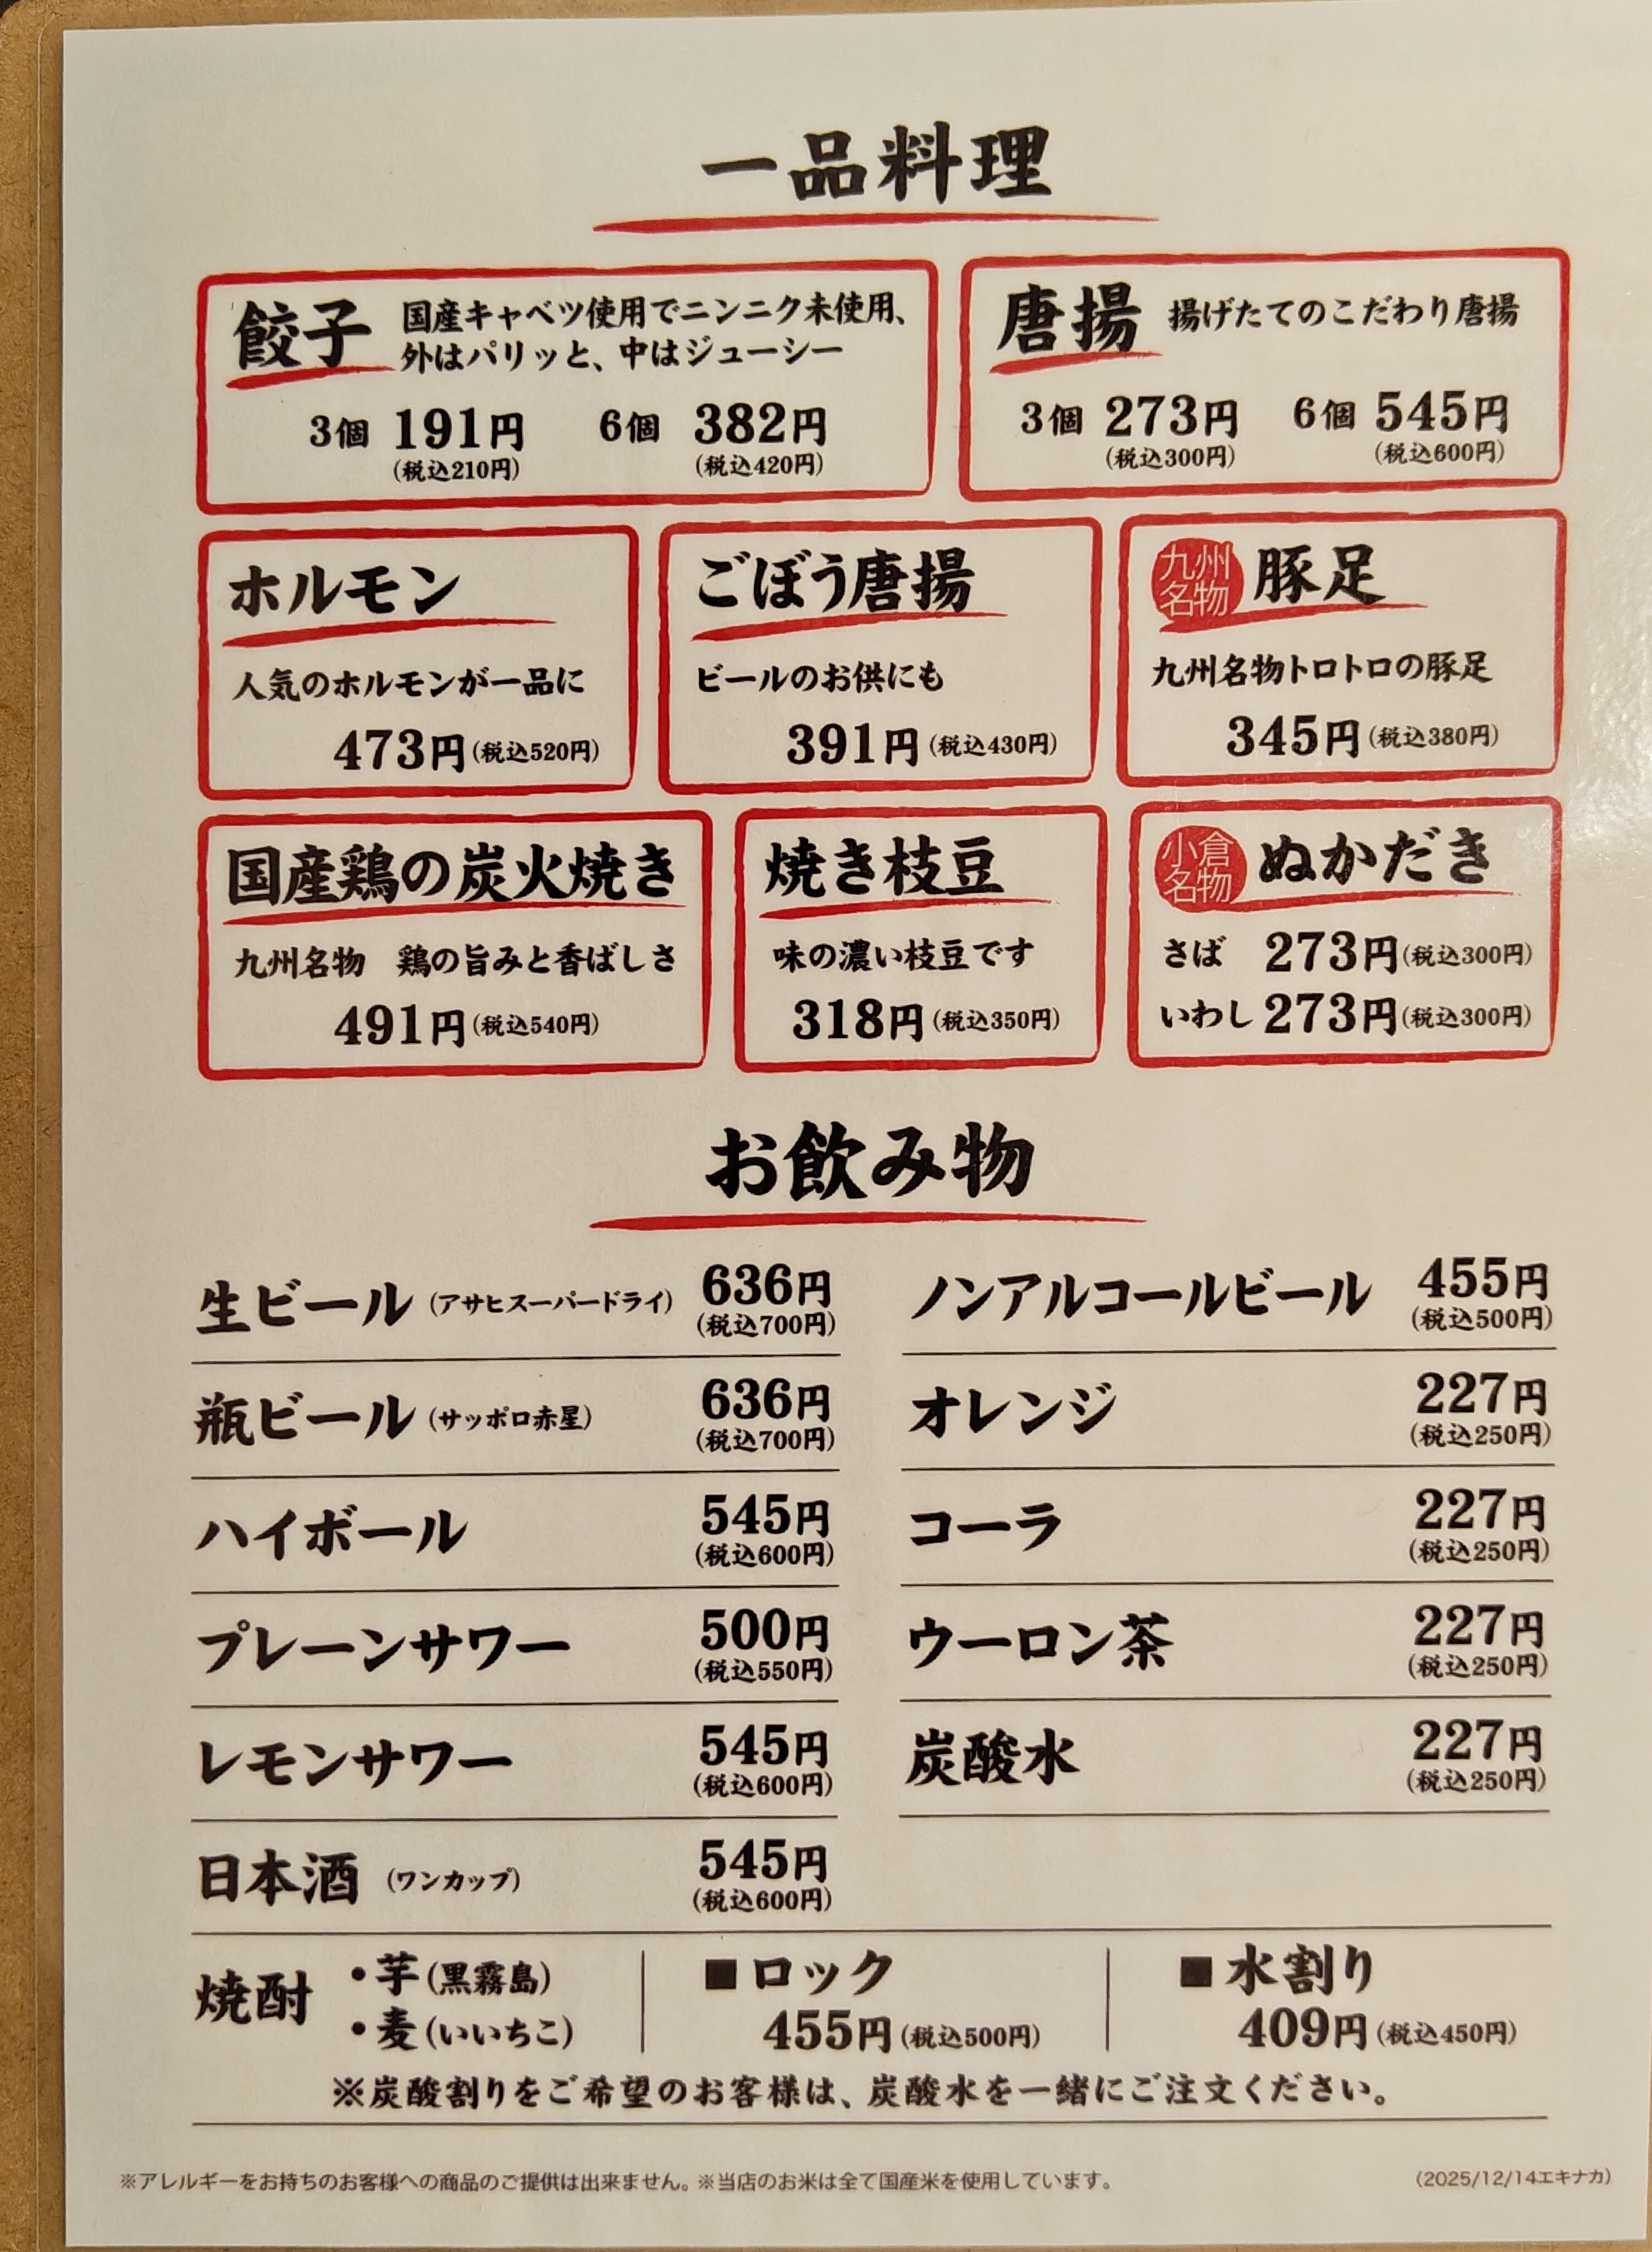 一品料理
餃子
国産キャベツ使用でニンニク未使用、
外はパリッと、中はジューシー
3個 191円 6個 382円
(税込210円) (税込420円)
唐揚 揚げたてのこだわり唐揚
3個 273円 6個 545円
(税込300円) (税込600円)
ホルモン
人気のホルモンが一品に
473円(税込520円)
ごぼう唐揚
ビールのお供にも
391円(税込430円)
九州
名物
豚足
九州名物トロトロの豚足
345円(税込380円)
国産鶏の炭火焼き
九州名物 鶏の旨みと香ばしさ
491円(税込540円)
焼き枝豆
味の濃い枝豆です
318円(税込350円)
小倉
名物
ぬかだき
さば 273円(税込300円)
いわし 273円(税込300円)
お飲み物
生ビール (アサヒスーパードライ) 636円
(税込700円)
瓶ビール (サッポロ赤星) 636円
(税込700円)
ハイボール 545円
(税込600円)
プレーンサワー 500円
(税込550円)
レモンサワー 545円
(税込600円)
日本酒 (ワンカップ) 545円
(税込600円)
ノンアルコールビール 455円
(税込500円)
オレンジ 227円
(税込250円)
コーラ 227円
(税込250円)
ウーロン茶 227円
(税込250円)
炭酸水 227円
(税込250円)
焼酎
・芋(黒霧島)
・麦(いいちこ)
■ロック
455円(税込500円)
■水割り
409円(税込450円)
※炭酸割りをご希望のお客様は、炭酸水を一緒にご注文ください。
※アレルギーをお持ちのお客様への商品のご提供は出来ません。※当店のお米は全て国産米を使用しています。
(2025/12/14エキナカ)